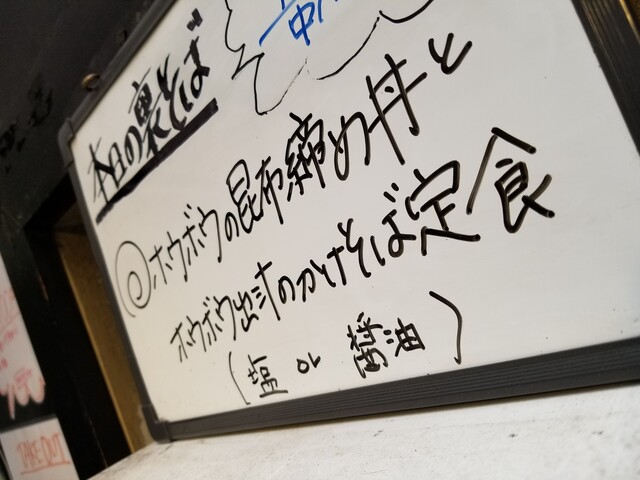 本日の裏そば
◎ホウボウの昆布締め丼と
ホウボウ出汁のかけそば定食
(塩 or 醤油)
TAKE OUT